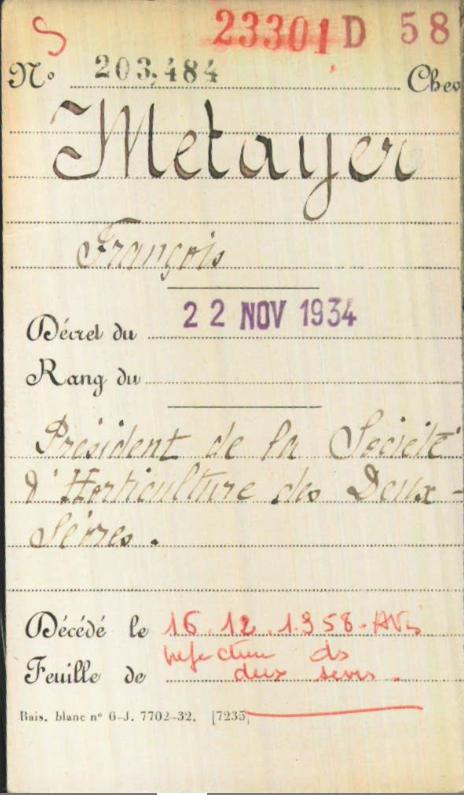 S 23301 D 58
N° 203,484 Chev
Metayer
François
Décret du 22 NOV 1934
Rang du
Président de la Société
d'Horticulture des Deux-
Sèvres.
Décédé le 16.12.1958. Avis
Feuille de Préfecture des
deux sèvres.
Bais. blanc n° 6-J. 7702-32. [7235]